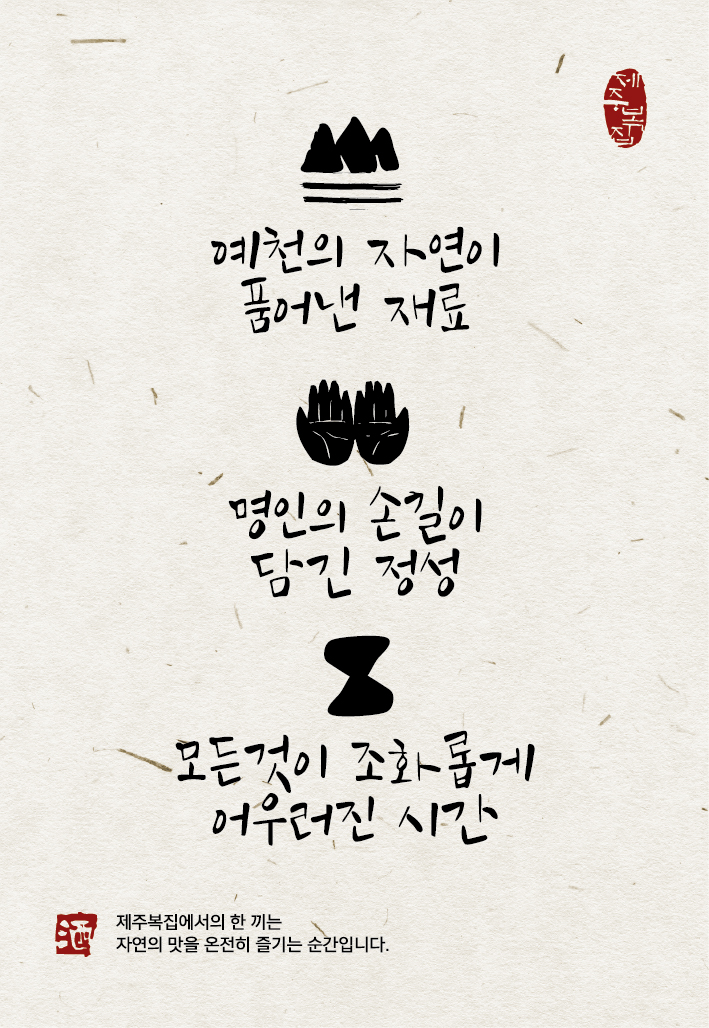 제주복집
예천의 자연이
품어낸 재료
명인의 손길이
담긴 정성
모든것이 조화롭게
어우러진 시간
酒
제주복집에서의 한 끼는
자연의 맛을 온전히 즐기는 순간입니다.